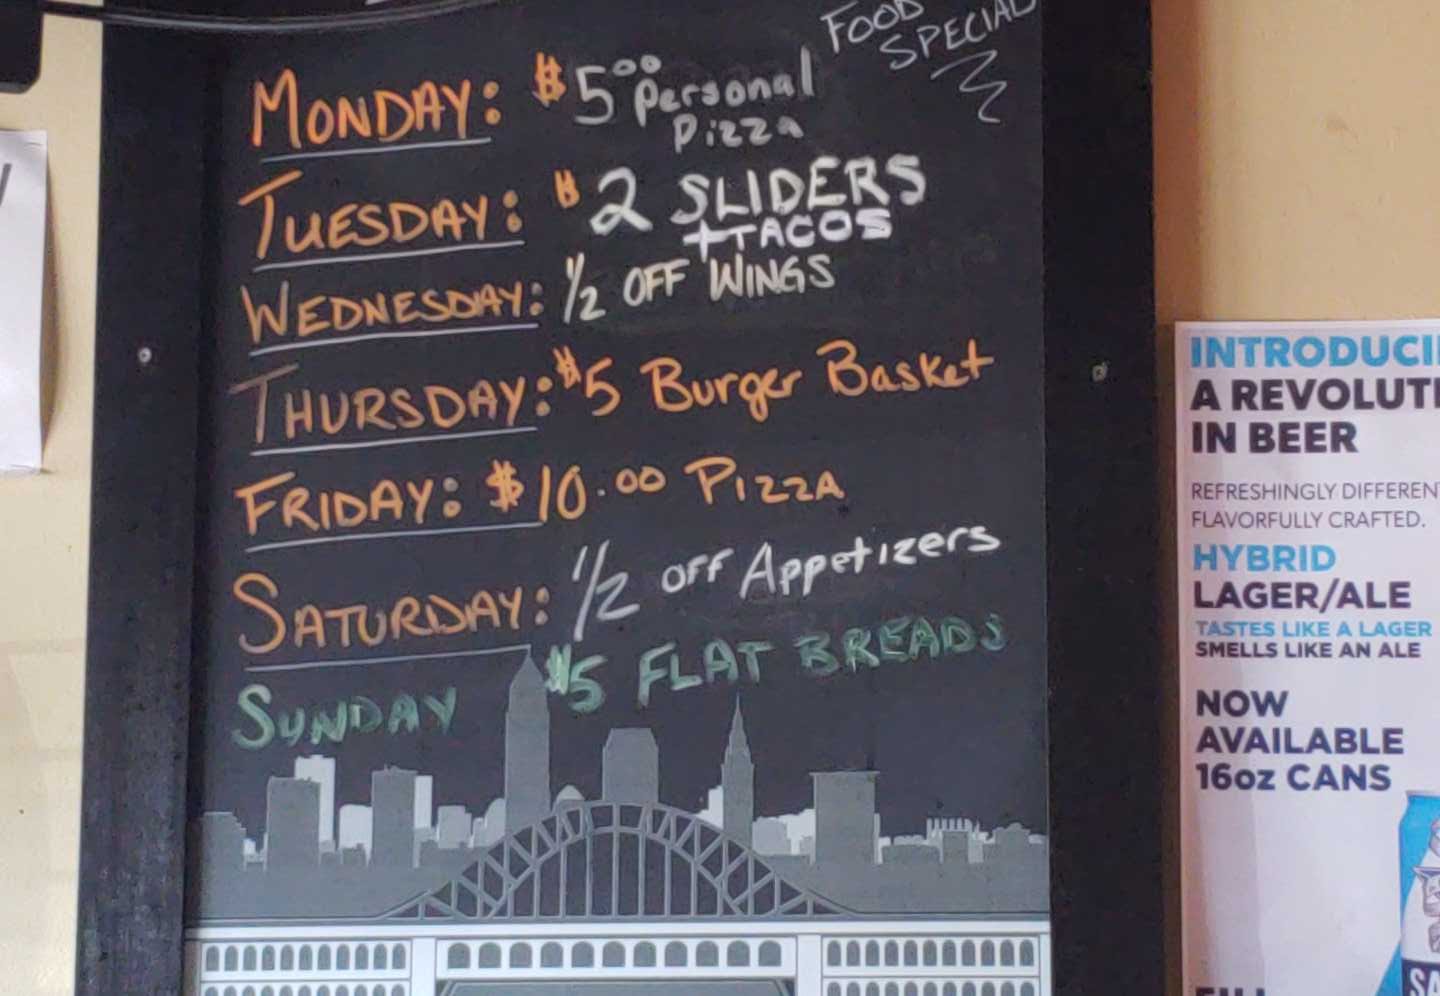 FOOD
SPECIALS
MONDAY: $5⁰⁰ Personal
Pizza
TUESDAY: $2 SLIDERS
+TACOS
WEDNESDAY: 1/2 OFF WINGS
THURSDAY: $5 Burger Basket
FRIDAY: $10.00 PIZZA
SATURDAY: 1/2 OFF Appetizers
SUNDAY $5 FLAT BREADS
INTRODUCI
A REVOLUTI
IN BEER
REFRESHINGLY DIFFERENT
FLAVORFULLY CRAFTED.
HYBRID
LAGER/ALE
TASTES LIKE A LAGER
SMELLS LIKE AN ALE
NOW
AVAILABLE
16oz CANS
SA